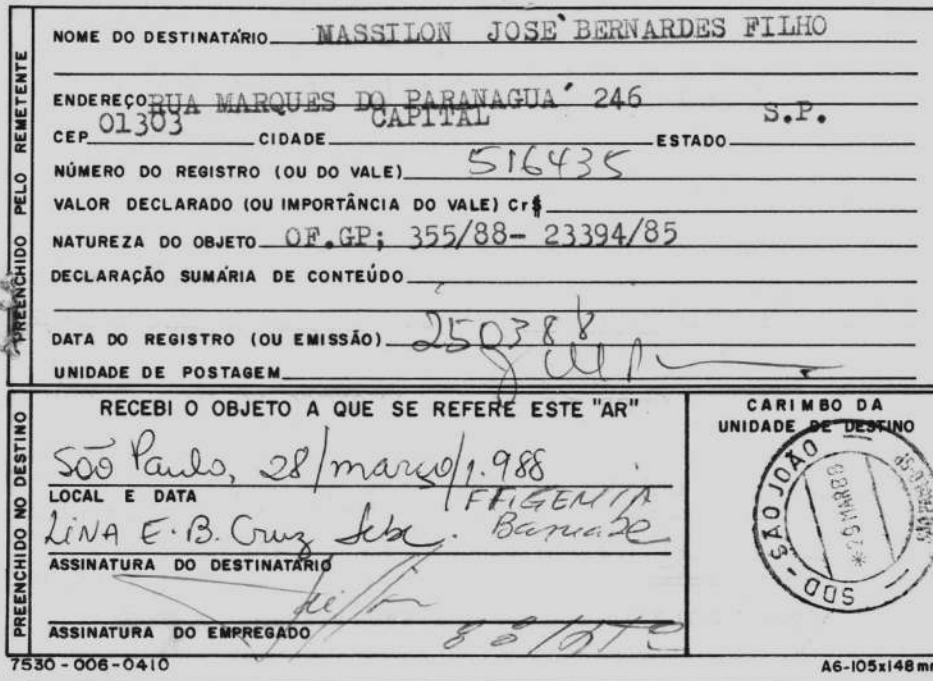 PREENCHIDO PELO REMETENTE
NOME DO DESTINATÁRIO MASSILON JOSÉ BERNARDES FILHO
ENDEREÇO RUA MARQUES DO PARANAGUÁ 246
CEP 01303 CIDADE CAPITAL ESTADO S.P.
NÚMERO DO REGISTRO (OU DO VALE) 516435
VALOR DECLARADO (OU IMPORTÂNCIA DO VALE) Cr$
NATUREZA DO OBJETO OF.GP; 355/88- 23394/85
DECLARAÇÃO SUMÁRIA DE CONTEÚDO
DATA DO REGISTRO (OU EMISSÃO) 250388
UNIDADE DE POSTAGEM
PREENCHIDO NO DESTINO
RECEBI O OBJETO A QUE SE REFERE ESTE "AR"
São Paulo, 28/março/1.988
LOCAL E DATA
LINA E. B. Cruz
ASSINATURA DO DESTINATÁRIO
ASSINATURA DO EMPREGADO
CARIMBO DA
UNIDADE DE DESTINO
SDD - SÃO JOÃO
7530-006-0410
A6-105x148mm